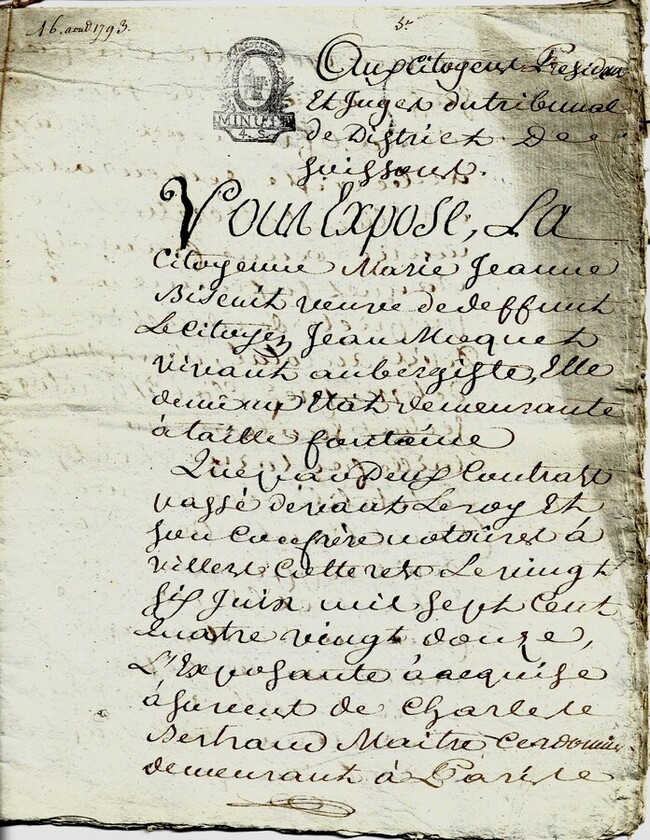 16. aoust 1793.
MINUTE
4. S.
Aux Citoyens President
Et Juges du tribunal
de District De
Soissons.
Vous Expose, La
Citoyenne Marie Jeanne
Biscuit veuve de deffunt
Le Citoyen Jean Micquet
vivant aubergiste, Elle
demeurante
à taille fontaine
Que par Deux Contrats
passé devant Leroy Et
son Confrère notaires à
villers Cotterets Le vingt
Six Juin mil Sept Cent
quatre vingt douze,
L'Exposante à acquise
de Charles
Bertrand Maitre Cordonnier
demeurant à Paris